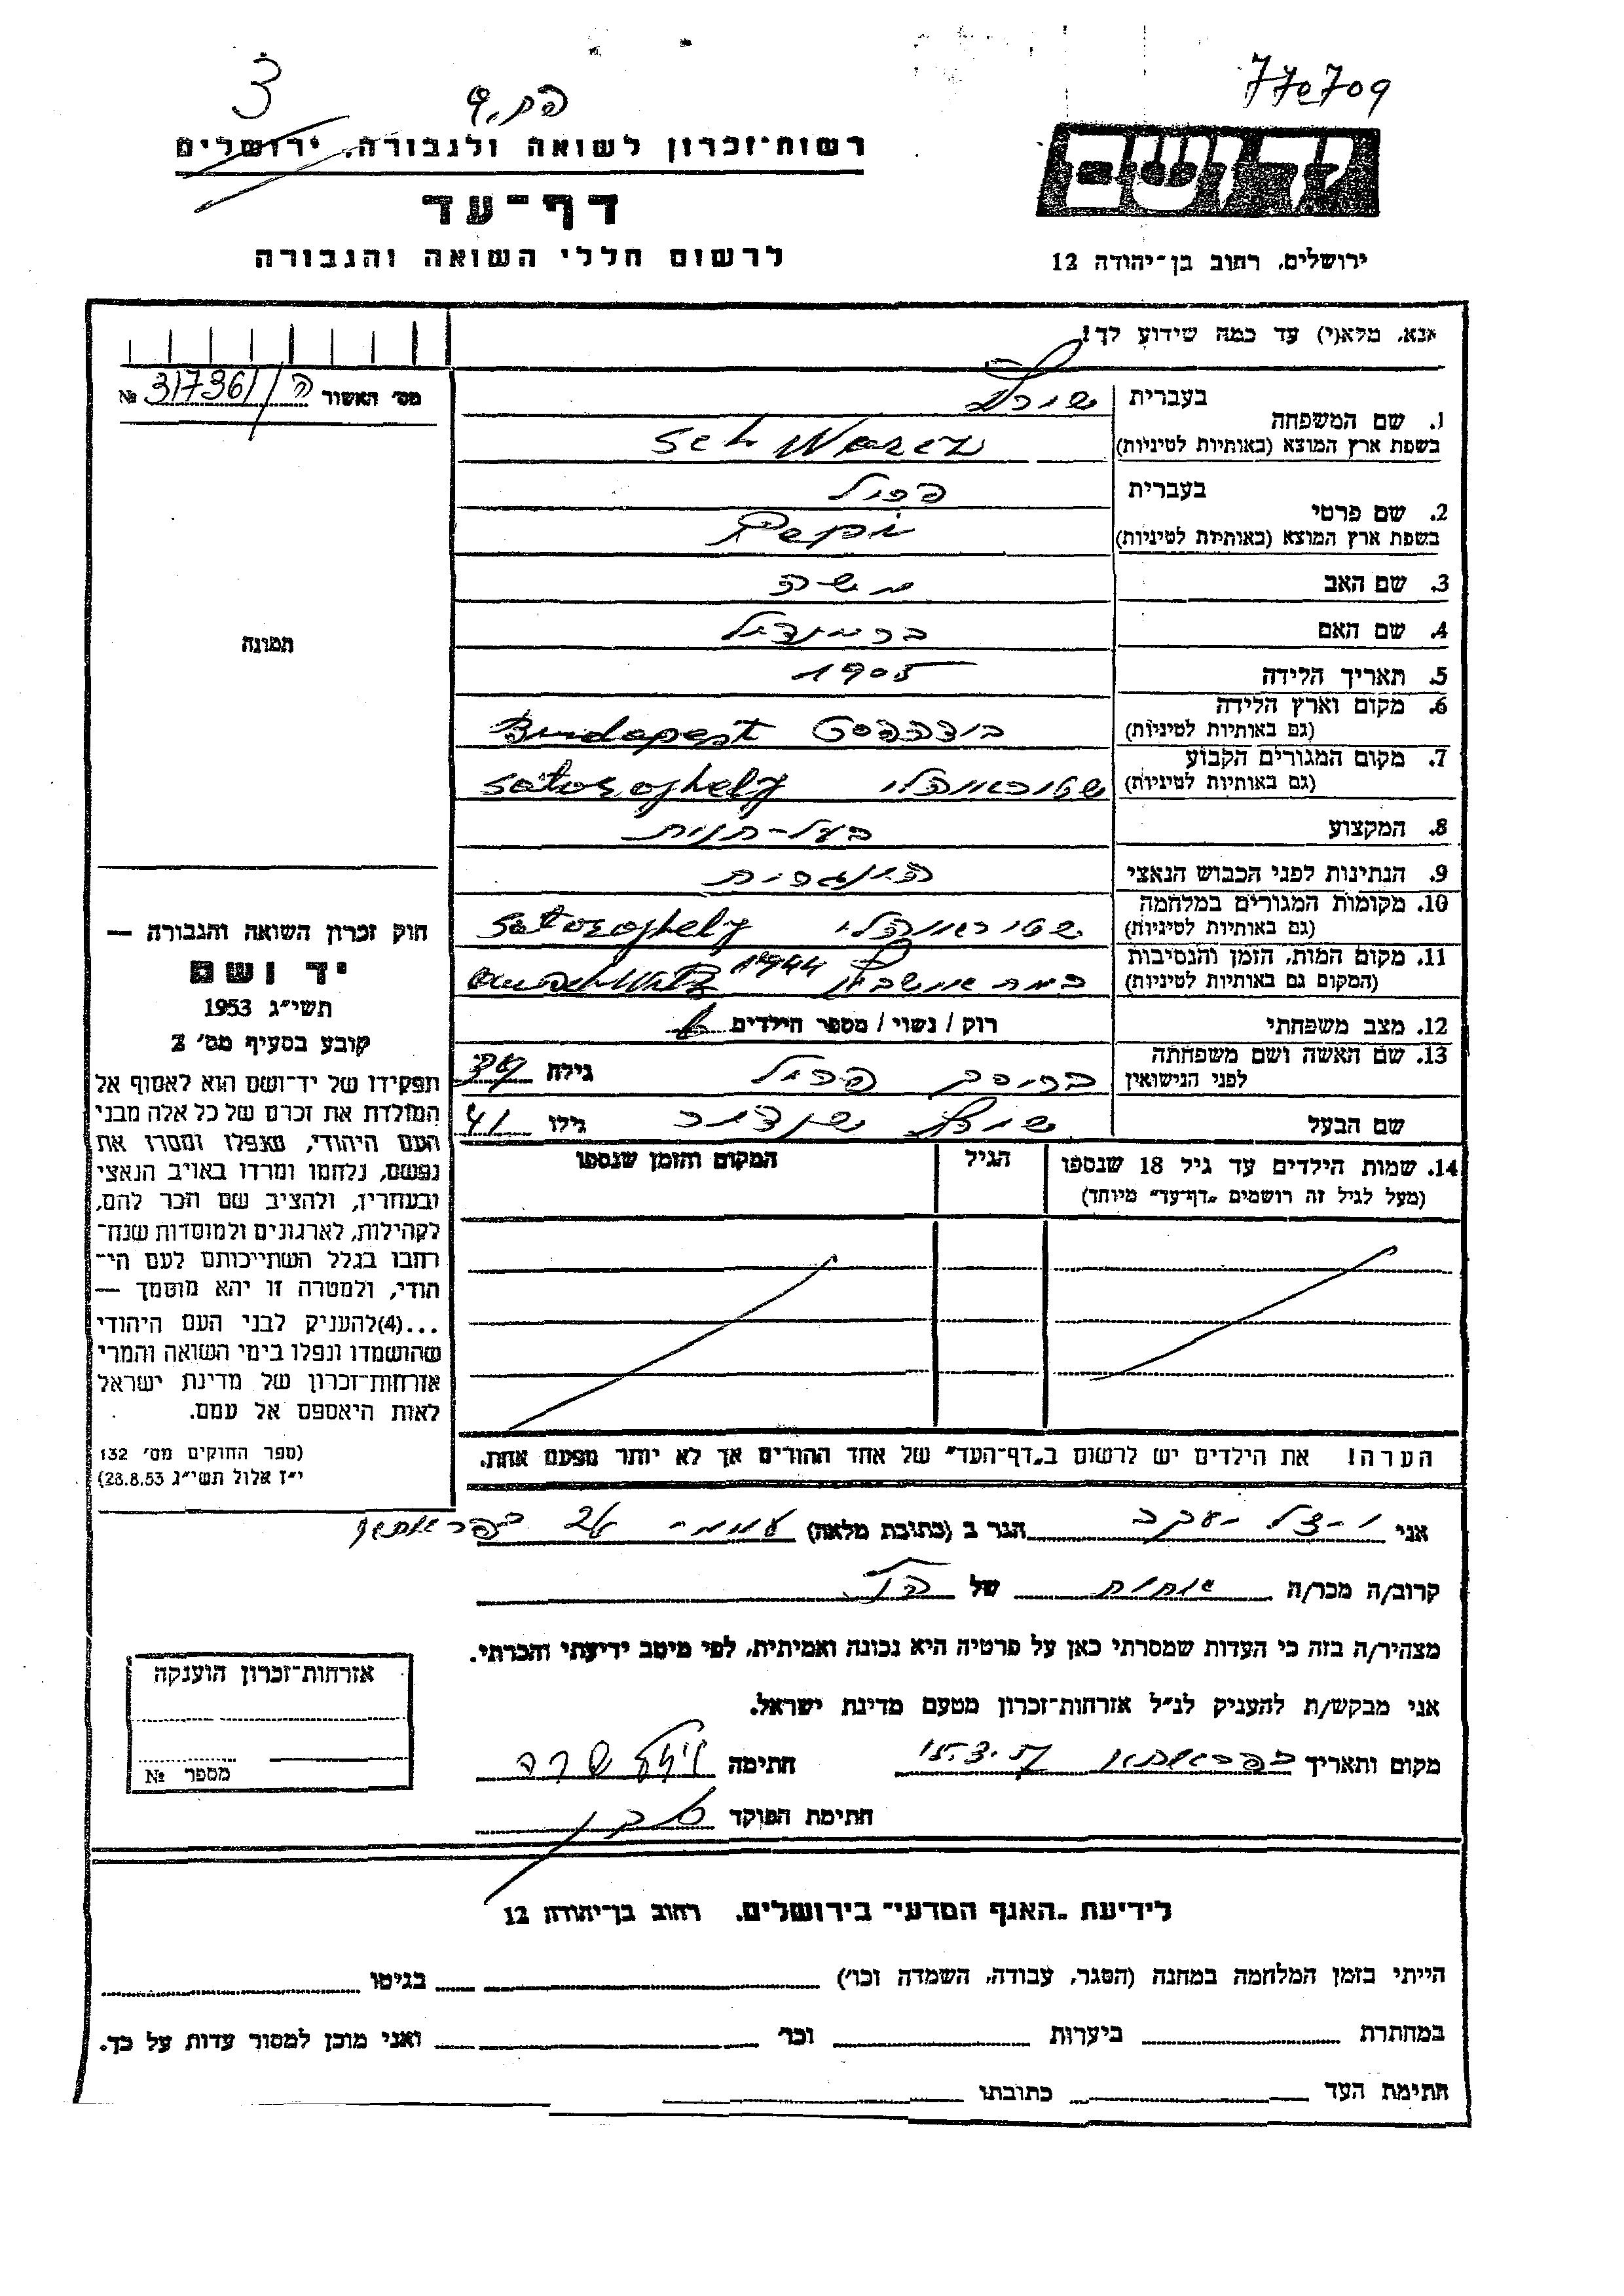 770709
3
רשות־זכרון לשואה ולגבורה, ירושלים
דף־עד
לרשום חללי השואה והגבורה
ידושם
ירושלים, רחוב בן־יהודה 12
אנא, מלא(י) עד כמה שידוע לך!
מס׳ האשור ה/31736 №
תמונה
חוק זכרון השואה והגבורה —
יד ושם
תשי״ג 1953
קובע בסעיף מס׳ 2
תפקידו של יד־ושם הוא לאסוף אל
המולדת את זכרם של כל אלה מבני
העם היהודי, שנפלו ומסרו את
נפשם, נלחמו ומרדו באויב הנאצי
ובעוזריו, ולהציב שם וזכר להם,
לקהילות, לארגונים ולמוסדות שנח־
רחבו בגלל השתייכותם לעם הי־
הודי, ולמטרה זו יהא מוסמך —
...(4)להעניק לבני העם היהודי
שהושמדו ונפלו בימי השואה והמרי
אזרחות־זכרון של מדינת ישראל
לאות היאספם אל עמם.
(ספר החוקים מס׳ 132
י״ז אלול תשי״ג 28.8.53)
1. שם המשפחה בעברית שורץ
בשפת ארץ המוצא (באותיות לטיניות) Schwarcz
2. שם פרטי בעברית
בשפת ארץ המוצא (באותיות לטיניות) Pepi
3. שם האב משה
4. שם האם בריינדיל
5. תאריך הלידה 1905
6. מקום וארץ הלידה (גם באותיות לטיניות) בודפסט Budapest
7. מקום המגורים הקבוע (גם באותיות לטיניות) Satoroghely
8. המקצוע בעל־חנות
9. הנתינות לפני הכבוש הנאצי הונגרית
10. מקומות המגורים במלחמה (גם באותיות לטיניות) Satoroghely
11. מקום המות, הזמן והנסיבות (המקום גם באותיות לטיניות) 1944
12. מצב משפחתי רוק / נשוי / מספר הילדים
13. שם האשה ושם משפחתה לפני הנישואין גילה 39
שם הבעל שורץ גילו 41
14. שמות הילדים עד גיל 18 שנספו הגיל המקום והזמן שנספו
(מעל לגיל זה רושמים „דף־עד״ מיוחד)
הערה! את הילדים יש לרשום ב„דף־העד״ של אחד ההורים אך לא יותר מפעם אחת.
אני יעקב הגר ב (כתובת מלאה)
קרוב/ה מכר/ה אחות של הנ״ל
מצהיר/ה בזה כי העדות שמסרתי כאן על פרטיה היא נכונה ואמיתית, לפי מיטב ידיעתי והכרתי.
אני מבקש/ת להעניק לנ״ל אזרחות־זכרון מטעם מדינת ישראל.
מקום ותאריך 15.3.57 חתימה שרה
חתימת הפוקד
אזרחות־זכרון הוענקה
מספר №
לידיעת „האגף המדעי״ בירושלים, רחוב בן־יהודה 12
הייתי בזמן המלחמה במחנה (הסגר, עבודה, השמדה וכו׳) בגיטו
במחתרת ביערות וכו׳ ואני מוכן למסור עדות על כך.
חתימת העד כתובתו